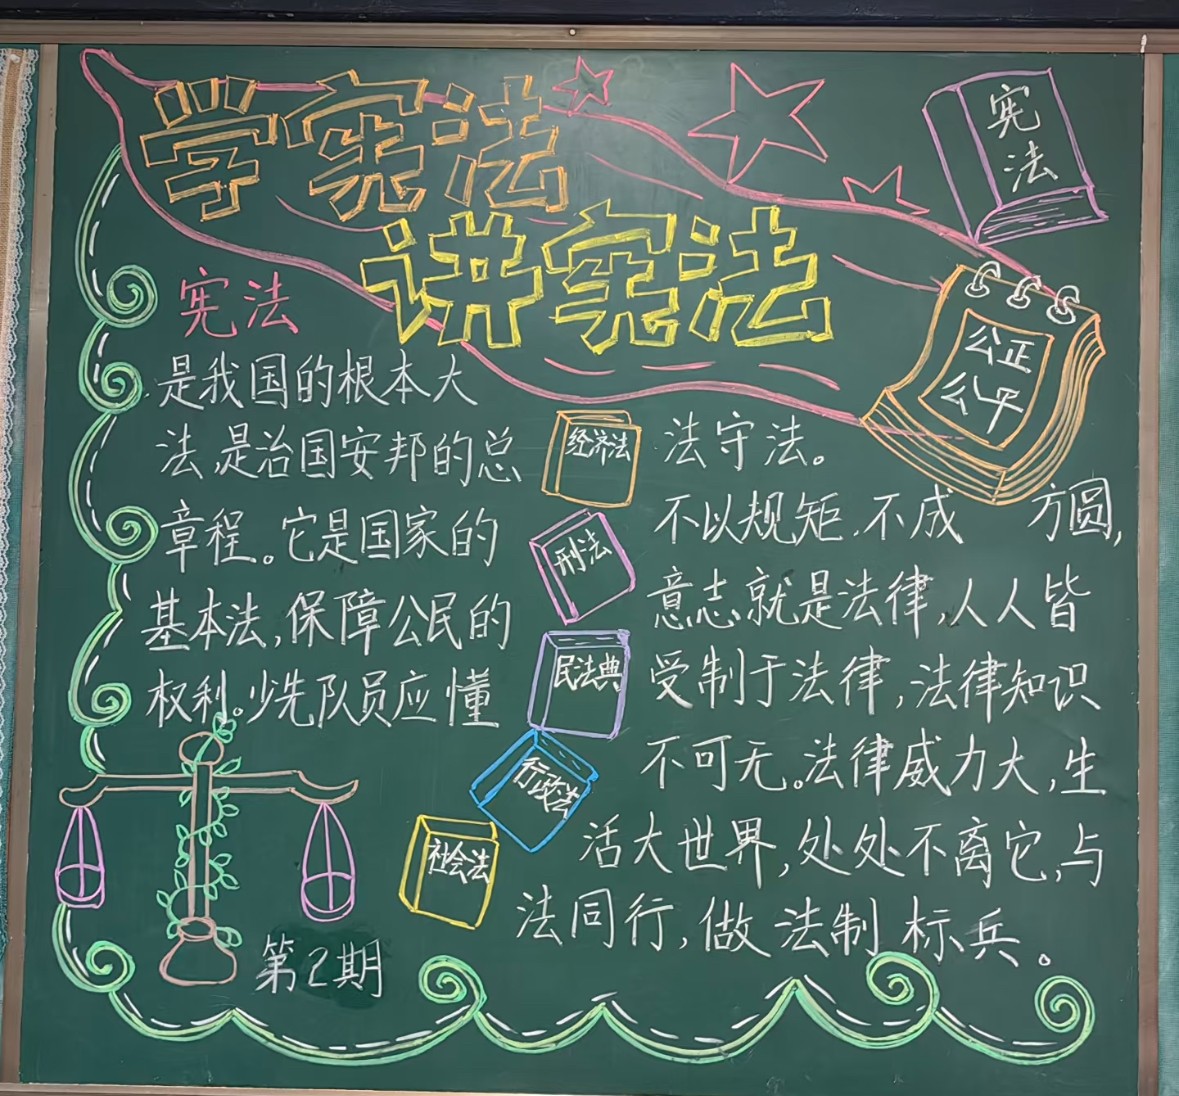 学宪法
讲宪法
宪法
公正
公平
宪法
是我国的根本大
法,是治国安邦的总
章程。它是国家的
基本法,保障公民的
权利。少先队员应懂
经济法
刑法
民法典
行政法
社会法
法守法。
不以规矩,不成 方圆,
意志就是法律,人人皆
受制于法律,法律知识
不可无。法律威力大,生
活大世界,处处不离它,与
法同行,做法制标兵。
第2期